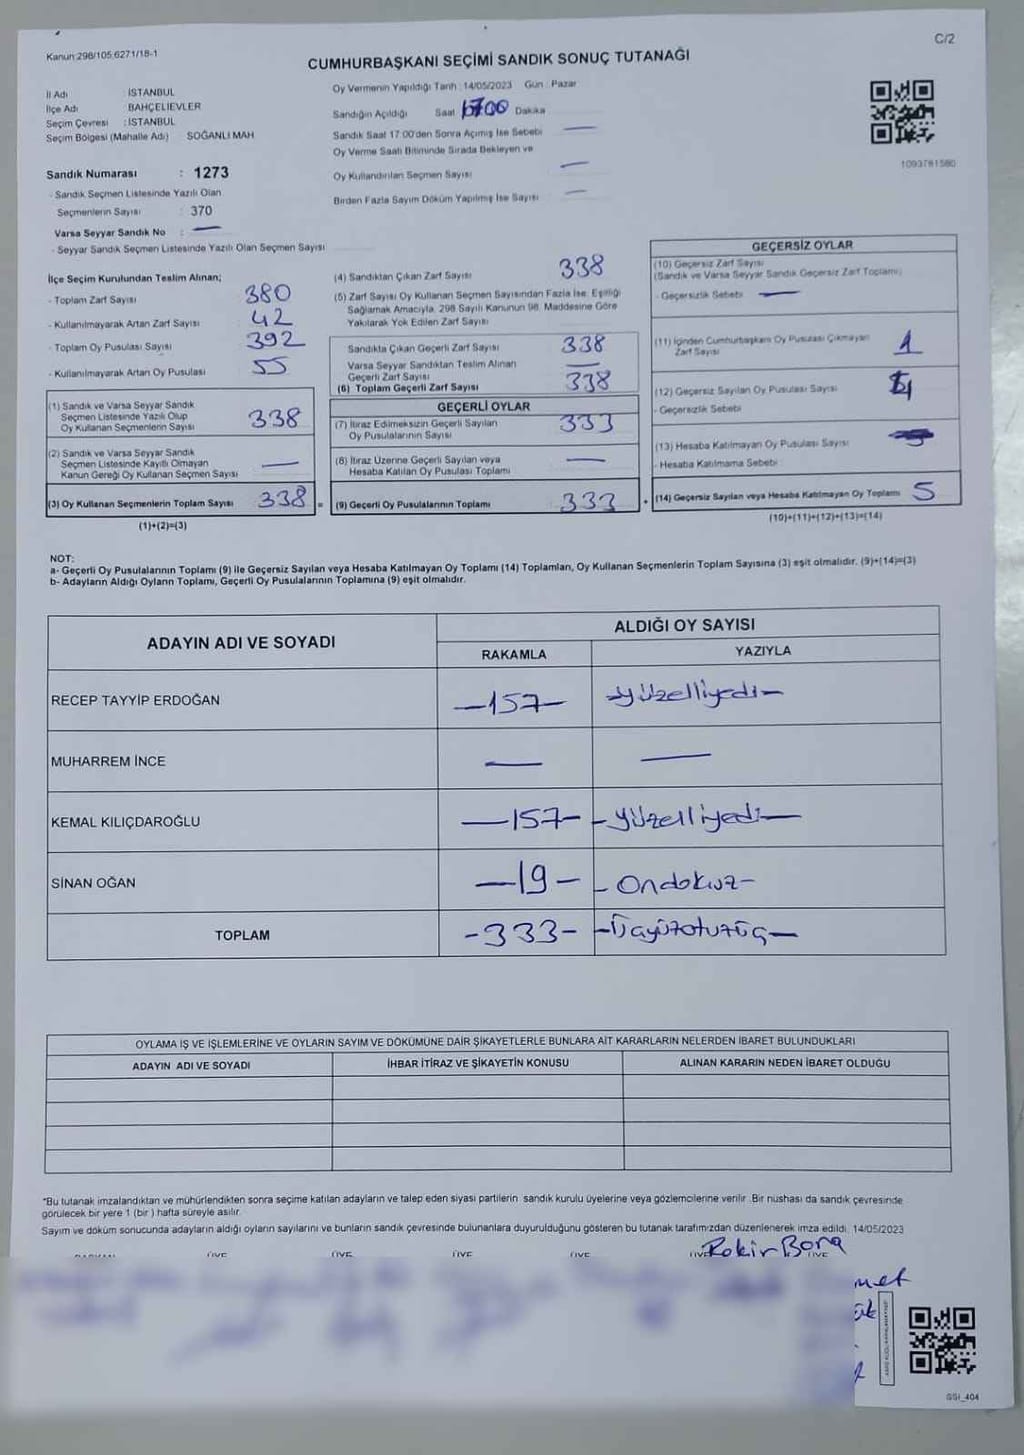 Kanun:298/105,6271/18-1
C/2
CUMHURBAŞKANI SEÇİMİ SANDIK SONUÇ TUTANAĞI
İl Adı : İSTANBUL
İlçe Adı : BAHÇELİEVLER
Seçim Çevresi : İSTANBUL
Seçim Bölgesi (Mahalle Adı) SOĞANLI MAH
Oy Vermenin Yapıldığı Tarih : 14/05/2023 Gün : Pazar
Sandığın Açıldığı Saat Dakika
Sandık Saat 17:00'den Sonra Açımış İse Sebebi —
Oy Verme Saati Bitiminde Sırada Bekleyen ve
Oy Kullandırılan Seçmen Sayısı —
Birden Fazla Sayım Döküm Yapılmış İse Sayısı —
1093781580
Sandık Numarası : 1273
- Sandık Seçmen Listesinde Yazılı Olan
Seçmenlerin Sayısı : 370
Varsa Seyyar Sandık No : —
- Seyyar Sandık Seçmen Listesinde Yazılı Olan Seçmen Sayısı
İlçe Seçim Kurulundan Teslim Alınan;
- Toplam Zarf Sayısı 380
- Kullanılmayarak Artan Zarf Sayısı 42
- Toplam Oy Pusulası Sayısı 392
- Kullanılmayarak Artan Oy Pusulası 55
(1) Sandık ve Varsa Seyyar Sandık
Seçmen Listesinde Yazılı Olup
Oy Kullanan Seçmenlerin Sayısı 338
(2) Sandık ve Varsa Seyyar Sandık
Seçmen Listesinde Kayıtlı Olmayan
Kanun Gereği Oy Kullanan Seçmen Sayısı —
(3) Oy Kullanan Seçmenlerin Toplam Sayısı 338 =
(1)+(2)=(3)
(4) Sandıktan Çıkan Zarf Sayısı 338
(5) Zarf Sayısı Oy Kullanan Seçmen Sayısından Fazla İse, Eşitliği
Sağlamak Amacıyla, 298 Sayılı Kanunun 98. Maddesine Göre
Yakılarak Yok Edilen Zarf Sayısı
Sandıkta Çıkan Geçerli Zarf Sayısı 338
Varsa Seyyar Sandıktan Teslim Alınan
Geçerli Zarf Sayısı —
(6) Toplam Geçerli Zarf Sayısı 338
GEÇERLİ OYLAR
(7) İtiraz Edilmeksizin Geçerli Sayılan
Oy Pusulalarının Sayısı 333
(8) İtiraz Üzerine Geçerli Sayılan veya
Hesaba Katılan Oy Pusulası Toplamı —
(9) Geçerli Oy Pusulalarının Toplamı 333 +
GEÇERSİZ OYLAR
(10) Geçersiz Zarf Sayısı
(Sandık ve Varsa Seyyar Sandık Geçersiz Zarf Toplamı)
- Geçersizlik Sebebi —
(11) İçinden Cumhurbaşkanı Oy Pusulası Çıkmayan
Zarf Sayısı 1
(12) Geçersiz Sayılan Oy Pusulası Sayısı
- Geçersizlik Sebebi
(13) Hesaba Katılmayan Oy Pusulası Sayısı
- Hesaba Katılmama Sebebi
(14) Geçersiz Sayılan veya Hesaba Katılmayan Oy Toplamı 5
(10)+(11)+(12)+(13)=(14)
NOT:
a- Geçerli Oy Pusulalarının Toplamı (9) ile Geçersiz Sayılan veya Hesaba Katılmayan Oy Toplamı (14) Toplamları, Oy Kullanan Seçmenlerin Toplam Sayısına (3) eşit olmalıdır. (9)+(14)=(3)
b- Adayların Aldığı Oyların Toplamı, Geçerli Oy Pusulalarının Toplamına (9) eşit olmalıdır.
ADAYIN ADI VE SOYADI
ALDIĞI OY SAYISI
RAKAMLA YAZIYLA
RECEP TAYYİP ERDOĞAN —157— —yüzelliyedi—
MUHARREM İNCE — —
KEMAL KILIÇDAROĞLU —157— —yüzelliyedi—
SİNAN OĞAN —19— —Ondokuz—
TOPLAM -333- —Üçyüzotuzüç—
OYLAMA İŞ VE İŞLEMLERİNE VE OYLARIN SAYIM VE DÖKÜMÜNE DAİR ŞİKAYETLERLE BUNLARA AİT KARARLARIN NELERDEN İBARET BULUNDUKLARI
ADAYIN ADI VE SOYADI İHBAR İTİRAZ VE ŞİKAYETİN KONUSU ALINAN KARARIN NEDEN İBARET OLDUĞU
*Bu tutanak imzalandıktan ve mühürlendikten sonra seçime katılan adayların ve talep eden siyasi partilerin sandık kurulu üyelerine veya gözlemcilerine verilir. Bir nüshası da sandık çevresinde
görülecek bir yere 1 (bir) hafta süreyle asılır.
Sayım ve döküm sonucunda adayların aldığı oyların sayılarını ve bunların sandık çevresinde bulunanlara duyurulduğunu gösteren bu tutanak tarafımızdan düzenlenerek imza edildi. 14/05/2023
BAŞKAN ÜYE ÜYE ÜYE ÜYE ÜYE ÜYE
Bora
met
SSI_404